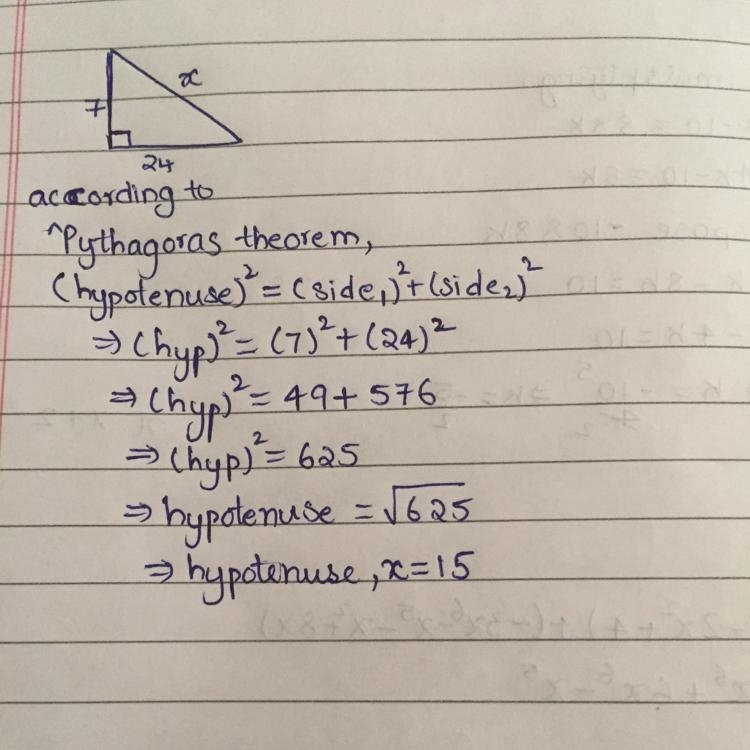 x
7
24
according to
^Pythagoras theorem,
(hypotenuse)² = (side₁)² + (side₂)²
⇒ (hyp)² = (7)² + (24)²
⇒ (hyp)² = 49 + 576
⇒ (hyp)² = 625
⇒ hypotenuse = √625
⇒ hypotenuse, x = 15